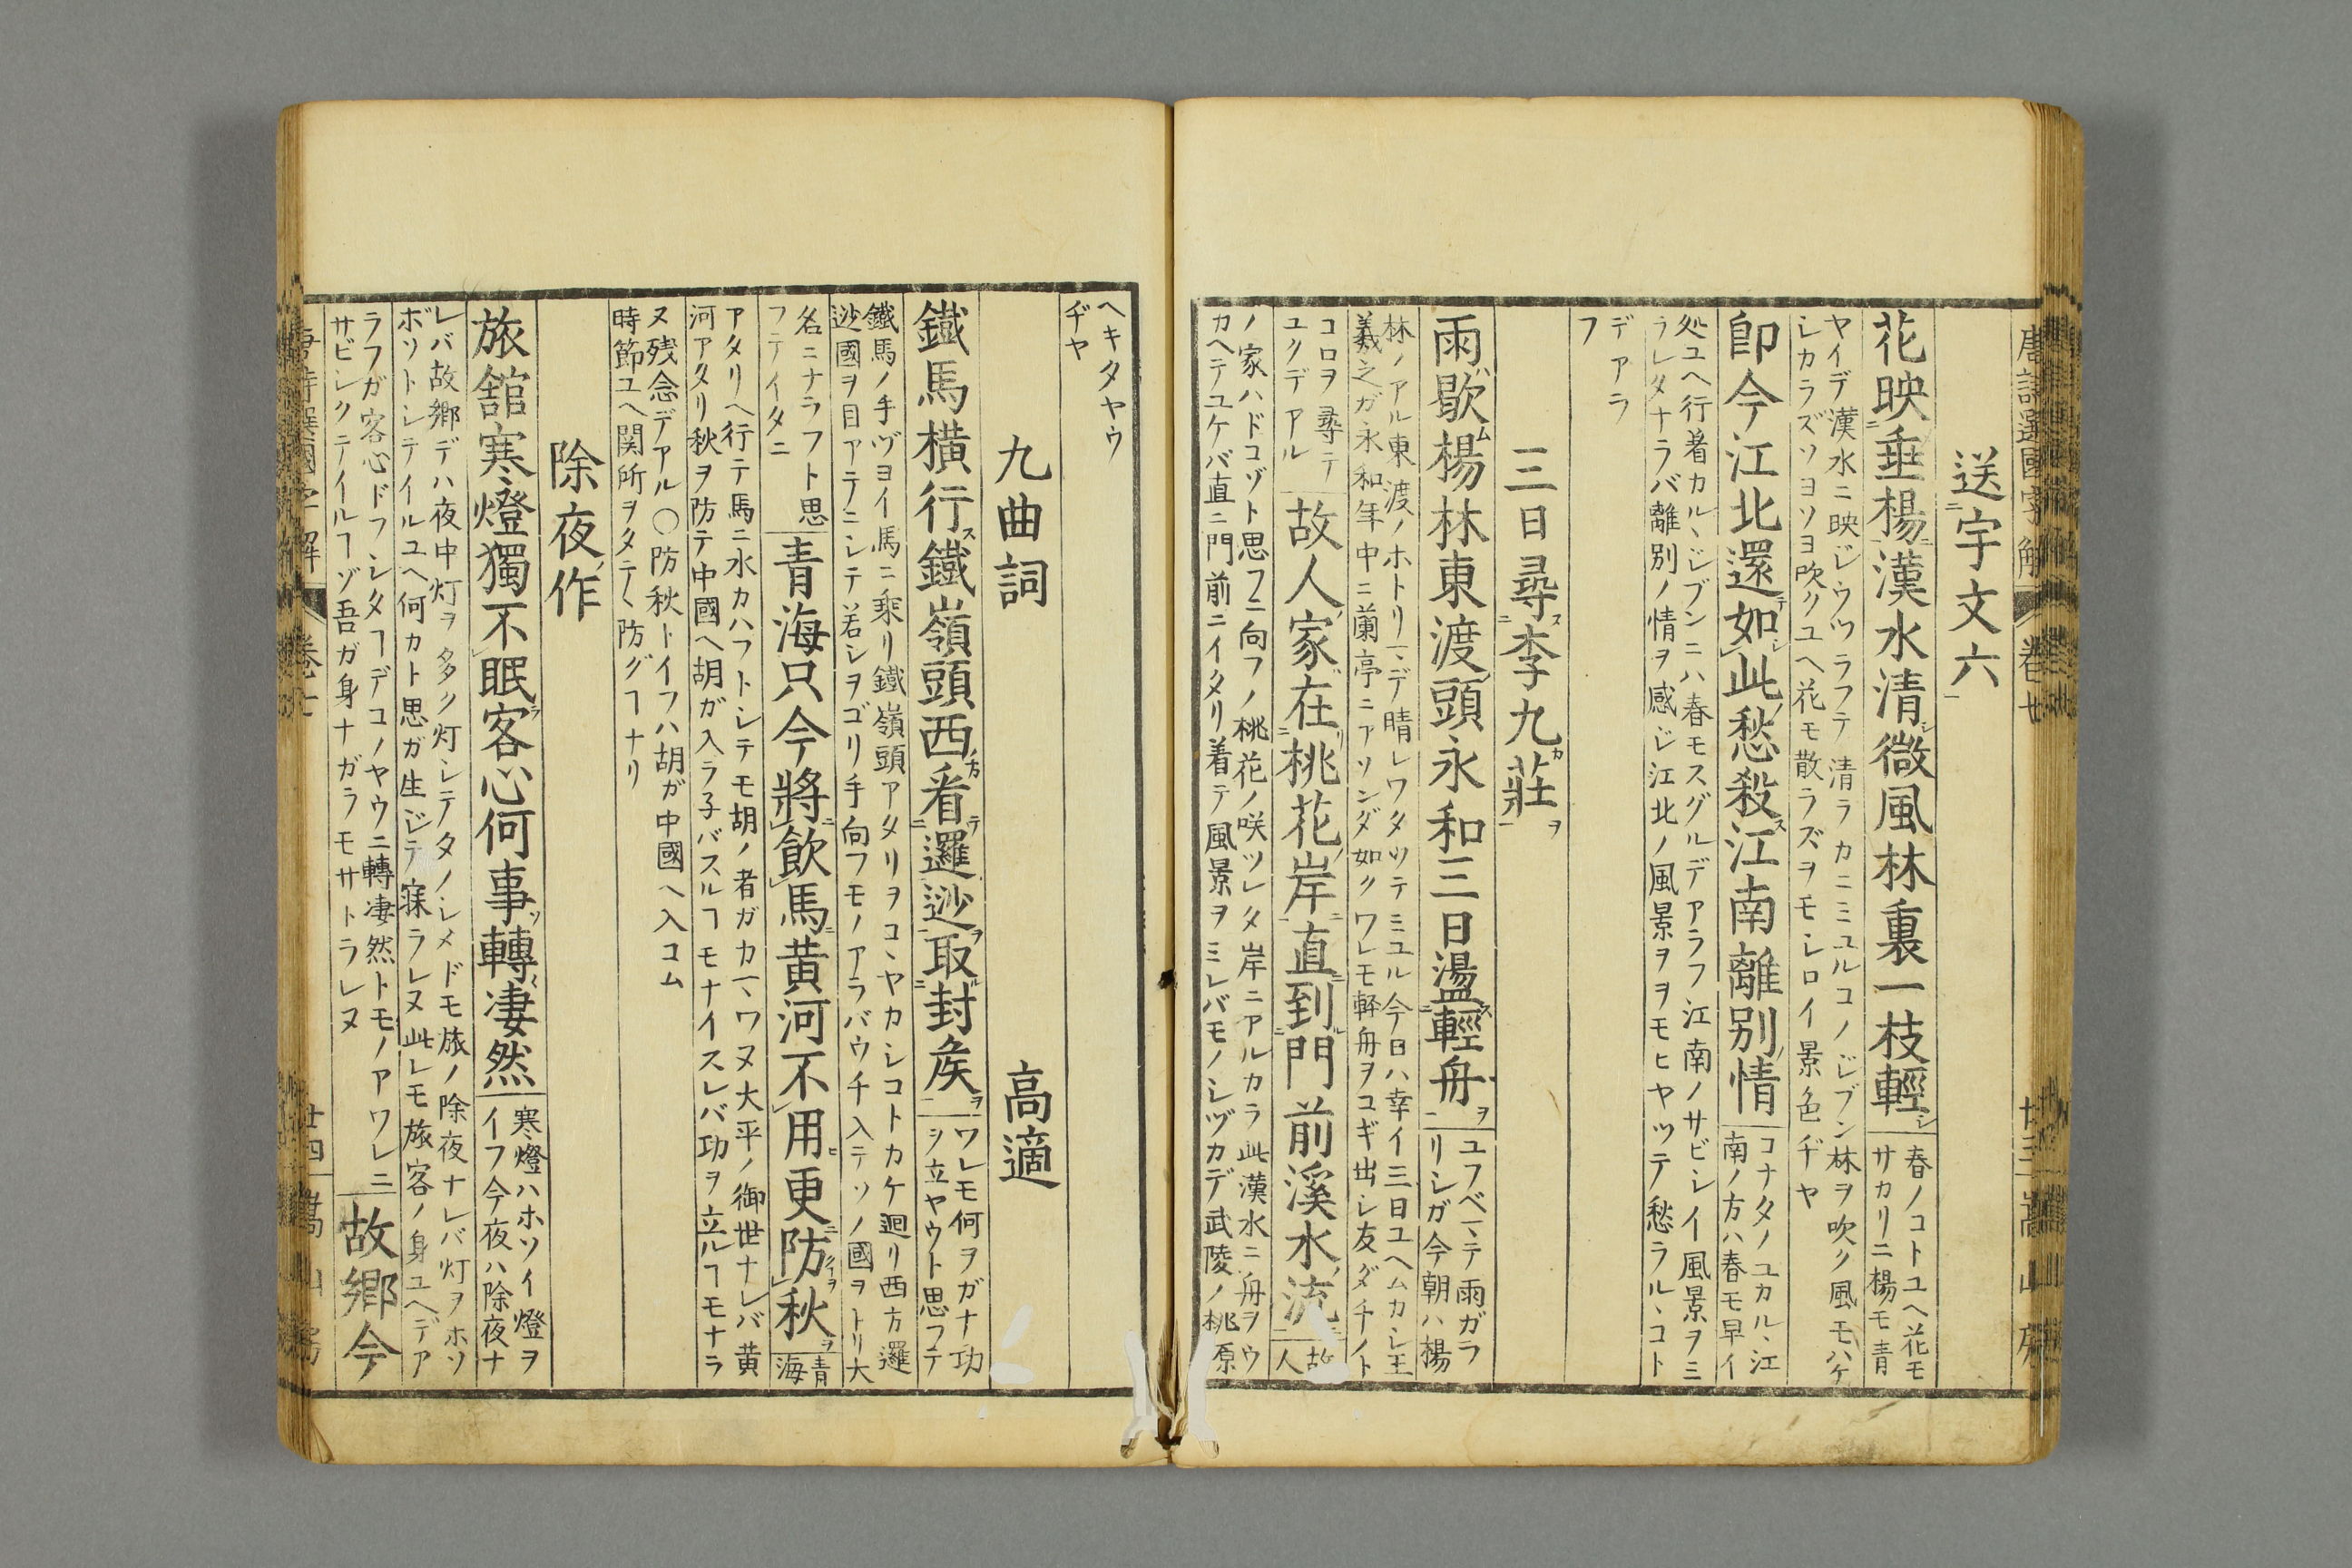 唐詩選國字解 卷七 廿三 嵩山房
送宇文六
花映垂楊漢水清微風林裏一枝輕
春ノコトユヘ花モ
サカリニ楊モ青
ヤイデ漢水ニ映ジウツラフテ清ラカニミユルコノジブン林ヲ吹ク風モハゲ
シカラズソヨソヨ吹クユヘ花モ散ラズヲモシロイ景色ヂヤ
卽今江北還如此愁殺江南離別情
コナタノユカルヽ江
南ノ方ハ春モ早イ
処ユヘ行着カルヽジブンニハ春モスグルデアラフ江南ノサビシイ風景ヲミ
ラレタナラバ離別ノ情ヲ感ジ江北ノ風景ヲヲモヒヤツテ愁ラルヽコト
デアラ
フ
三日尋李九莊
雨歇楊林東渡頭永和三日盪輕舟
ユフベマデ雨ガラ
リシガ今朝ハ楊
林ノアル東渡ノホトリマデ晴レワタツテミユル今日ハ幸イ三日ユヘムカシ王
羲之ガ永和年中ニ蘭亭ニアソンダ如クワレモ軽舟ヲコギ出シ友ダチノト
コロヲ尋テ
ユクデアル
故人家在桃花岸直到門前溪水流
故
人
ノ家ハドコゾト思フニ向フノ桃花ノ咲ツレタ岸ニアルカラ此漢水ニ舟ヲウ
カヘテユケバ直ニ門前ニイタリ着テ風景ヲミレバモノシヅカデ武陵ノ桃源
ヘキタヤウ
ヂヤ
九曲詞 高適
鐵馬橫行鐵嶺頭西看邏逤取封侯
ワレモ何ヲガナ功
ヲ立ヤウト思フテ
鐵馬ノ手ヅヨイ馬ニ乘リ鐵嶺頭アタリヲコヽヤカシコトカケ廻リ西方邏
逤國ヲ目アテニシテ若シヲゴリ手向フモノアラバウチ入テソノ國ヲトリ大
名ニナラフト思
フテイタニ
青海只今將飮馬黄河不用更防秋
青
海
アタリヘ行テ馬ニ水カハフトシテモ胡ノ者ガカマヽワヌ大平ノ御世ナレバ黄
河アタリ秋ヲ防テ中國ヘ胡ガ入ラ子バスルヿモナイスレバ功ヲ立ルヿモナラ
ヌ残念デアル〇防秋トイフハ胡ガ中國ヘ入コム
時節ユヘ関所ヲタテヽ防グヿナリ
除夜作
旅舘寒燈獨不眠客心何事轉凄然
寒燈ハホソイ燈ヲ
イフ今夜ハ除夜ナ
レバ故郷デハ夜中灯ヲ多ク灯シテタノシメドモ旅ノ除夜ナレバ灯ヲホソ
ボソトシテイルユヘ何カト思ガ生ジテ寐ラレヌ此レモ旅客ノ身ユヘデア
ラフガ客心ドフシタヿデコノヤウニ轉凄然トモノアワレニ
サビシクテイルヿゾ吾ガ身ナガラモサトラレヌ
故鄉今
唐詩選國字解 卷七 廿四 嵩山房